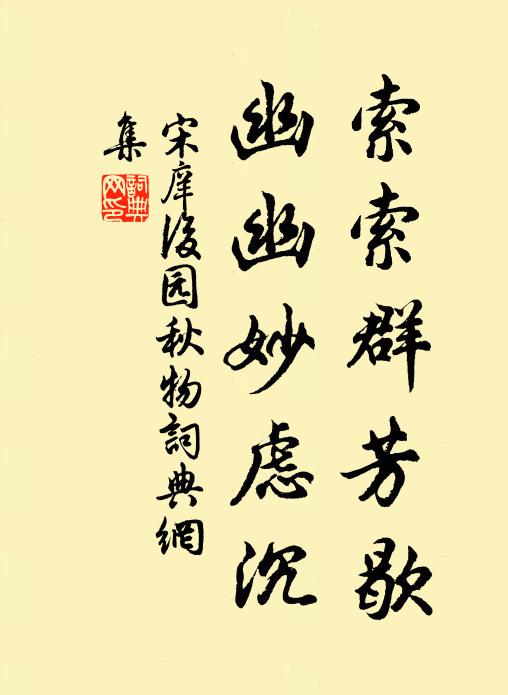 索索群芳歇
幽幽妙虑沉
宋庠後园秋物詞典網
集
詞典网印